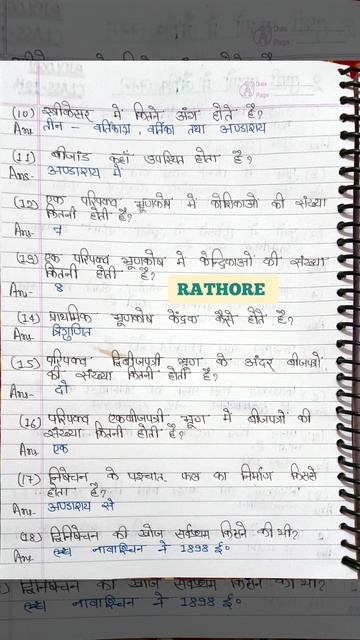 Date
Page
(10) स्त्रीकेसर में कितने अंग होते है?
Ans तीन - वर्तिकाग्र, वर्तिका तथा अण्डाशय
(11) बीजांड कहाँ उपस्थित होता है?
Ans- अण्डाशय में
(12) एक परिपक्व भ्रूणकोष में कोशिकाओ की संख्या
कितनी होती है?
Ans 7
(13) एक परिपक्व भ्रूणकोष मे केन्द्रिकाओ की संख्या
कितनी होती है?
Ans- 8
RATHORE
(14) प्राथमिक भ्रूणकोष केंद्रक कैसे होते है?
Ans त्रिगुणित
(15) परिपक्व द्विबीजपत्री भ्रूण के अंदर बीजपत्रो
की संख्या कितनी होती है?
Ans- दो
(16) परिपक्व एकबीजपत्री भ्रूण में बीजपत्रों की
संख्या कितनी होती है?
Ans एक
(17) निषेचन के पश्चात फल का निर्माण किससे
होता है?
Ans अण्डाशय से
(18) द्विनिषेचन की खोज सर्वप्रथम किसने की थी?
Ans नावाश्चिन ने 1898 ई०
द्विनिषेचन की खोज सर्वप्रथम किसने की थी?
नावाश्चिन ने 1898 ई०